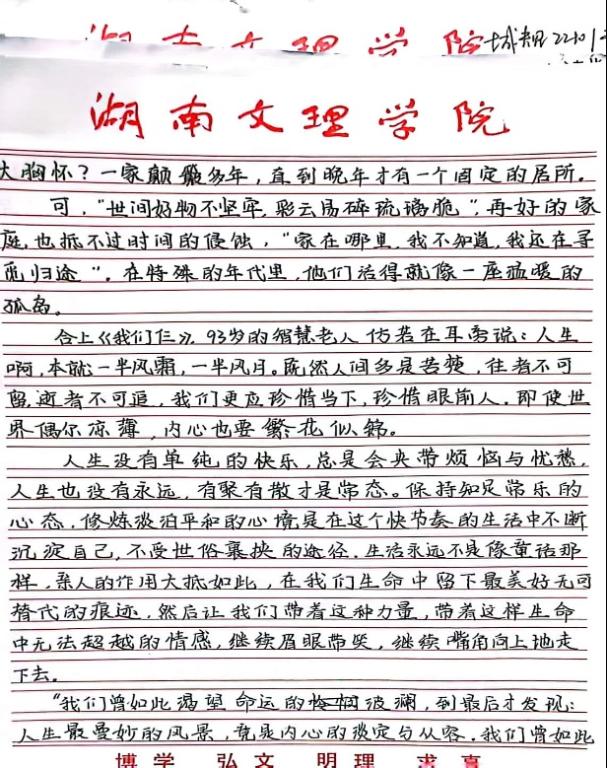 湖南文理学院 城规2210
湖南文理学院
大胸怀？一家颠簸多年，直到晚年才有一个固定的居所。
可，“世间好物不坚牢，彩云易碎琉璃脆”，再好的家
庭，也抵不过时间的侵蚀，“家在哪里，我不知道，我还在寻
觅归途”。在特殊的年代里，他们活得就像一座温暖的
孤岛。
合上《我们仨》，93岁的智慧老人仿若在耳旁说：人生
啊，本就一半风霜，一半风月。既然人间多是苦楚，往者不可
留，逝者不可追，我们更应珍惜当下，珍惜眼前人。即使世
界偶尔凉薄，内心也要繁花似锦。
人生没有单纯的快乐，总是会夹带烦恼与忧愁，
人生也没有永远，有聚有散才是常态。保持知足常乐的
心态，修炼淡泊平和的心境，是在这个快节奏的生活中不断
沉淀自己，不受世俗裹挟的途径。生活永远不是像童话那
样，亲人的作用大抵如此，在我们生命中留下最美好无可
替代的痕迹，然后让我们带着这种力量，带着这样生命
中无法超越的情感，继续眉眼带笑，继续嘴角向上地走
下去。
“我们曾如此渴望命运的波澜，到最后才发现：
人生最曼妙的风景，竟是内心的淡定与从容。我们曾如此
博学 弘文 明理 求真